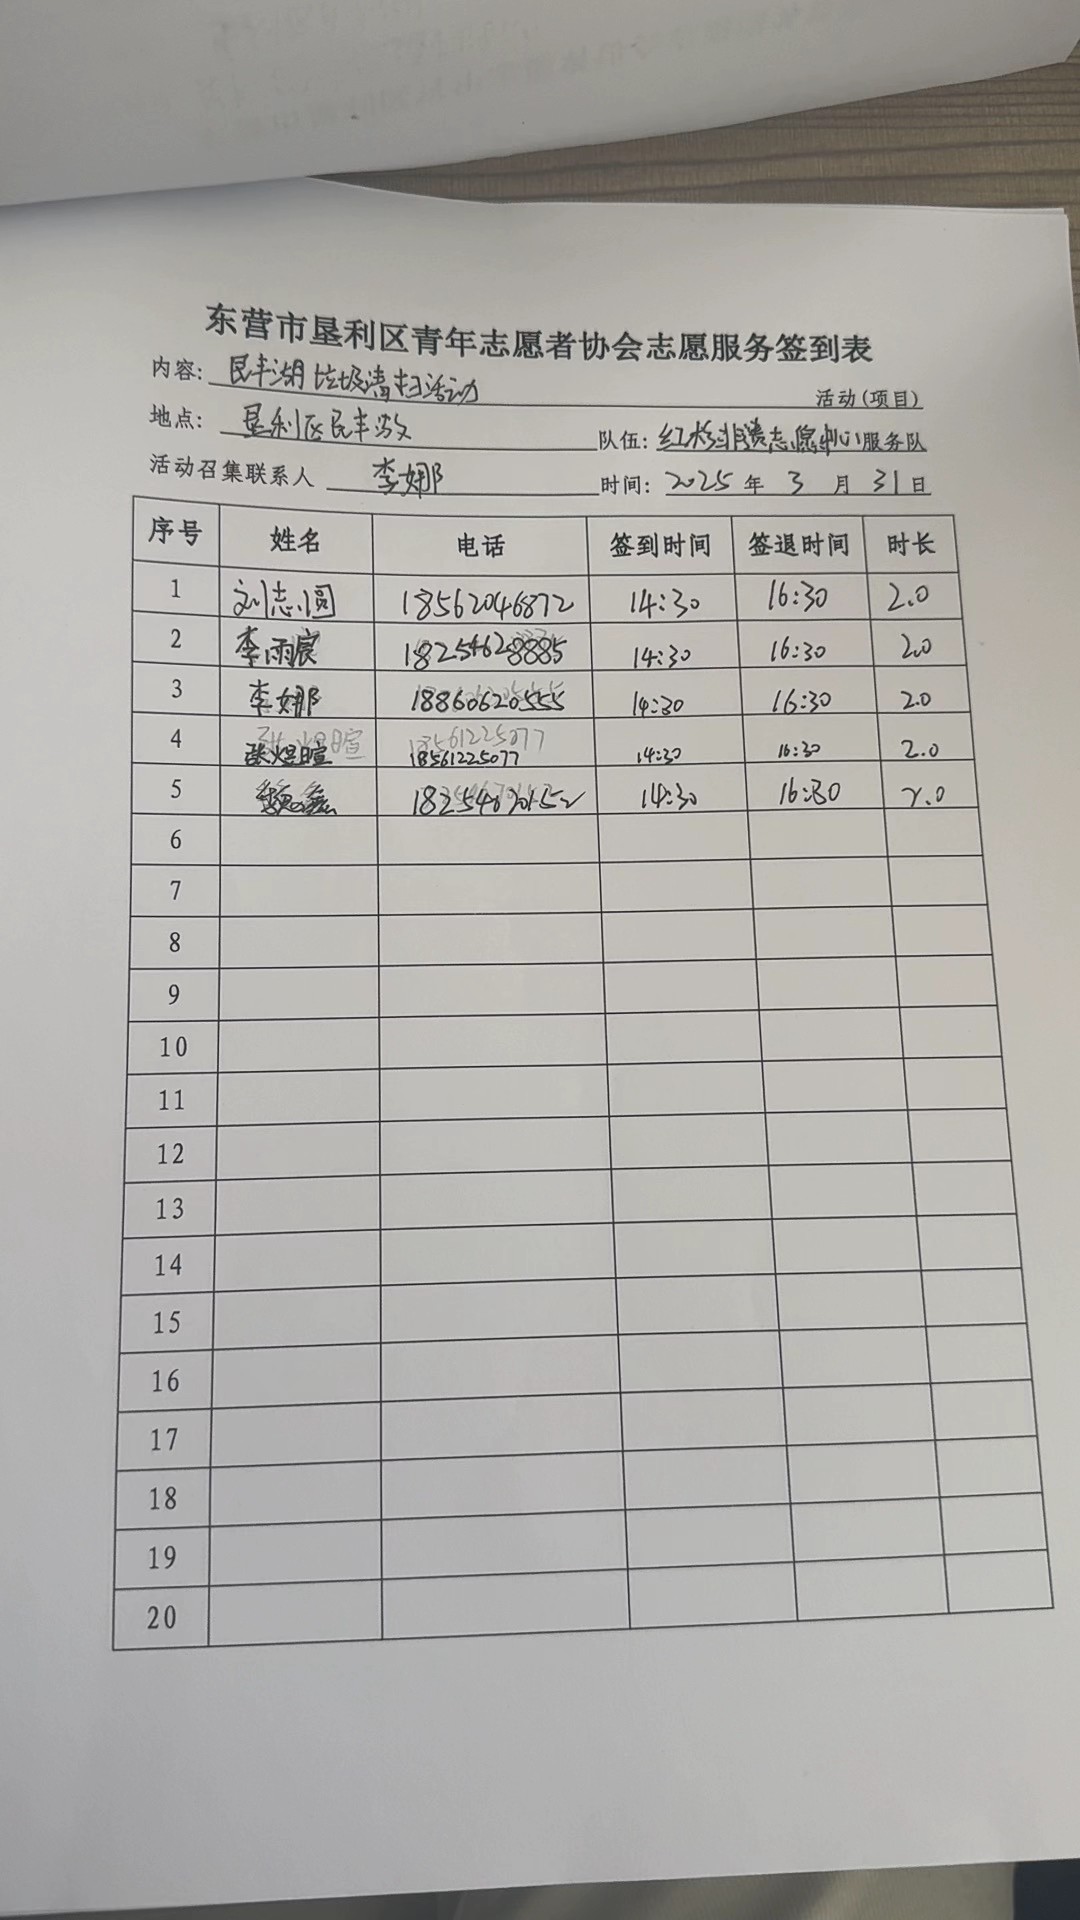 东营市垦利区青年志愿者协会志愿服务签到表
内容: 民丰湖垃圾清扫活动 活动(项目)
地点: 垦利区民丰 队伍: 红杉非遗志愿中心服务队
活动召集联系人 李娜 时间: 2025 年 3 月 31 日
序号 姓名 电话 签到时间 签退时间 时长
1 刘志圆 18562046872 14:30 16:30 2.0
2 李雨宸 18254628885 14:30 16:30 2.0
3 李娜 18860620555 14:30 16:30 2.0
4 张煜暄 18561225077 14:30 16:30 2.0
5 魏鑫 14:30 16:30 2.0
6
7
8
9
10
11
12
13
14
15
16
17
18
19
20